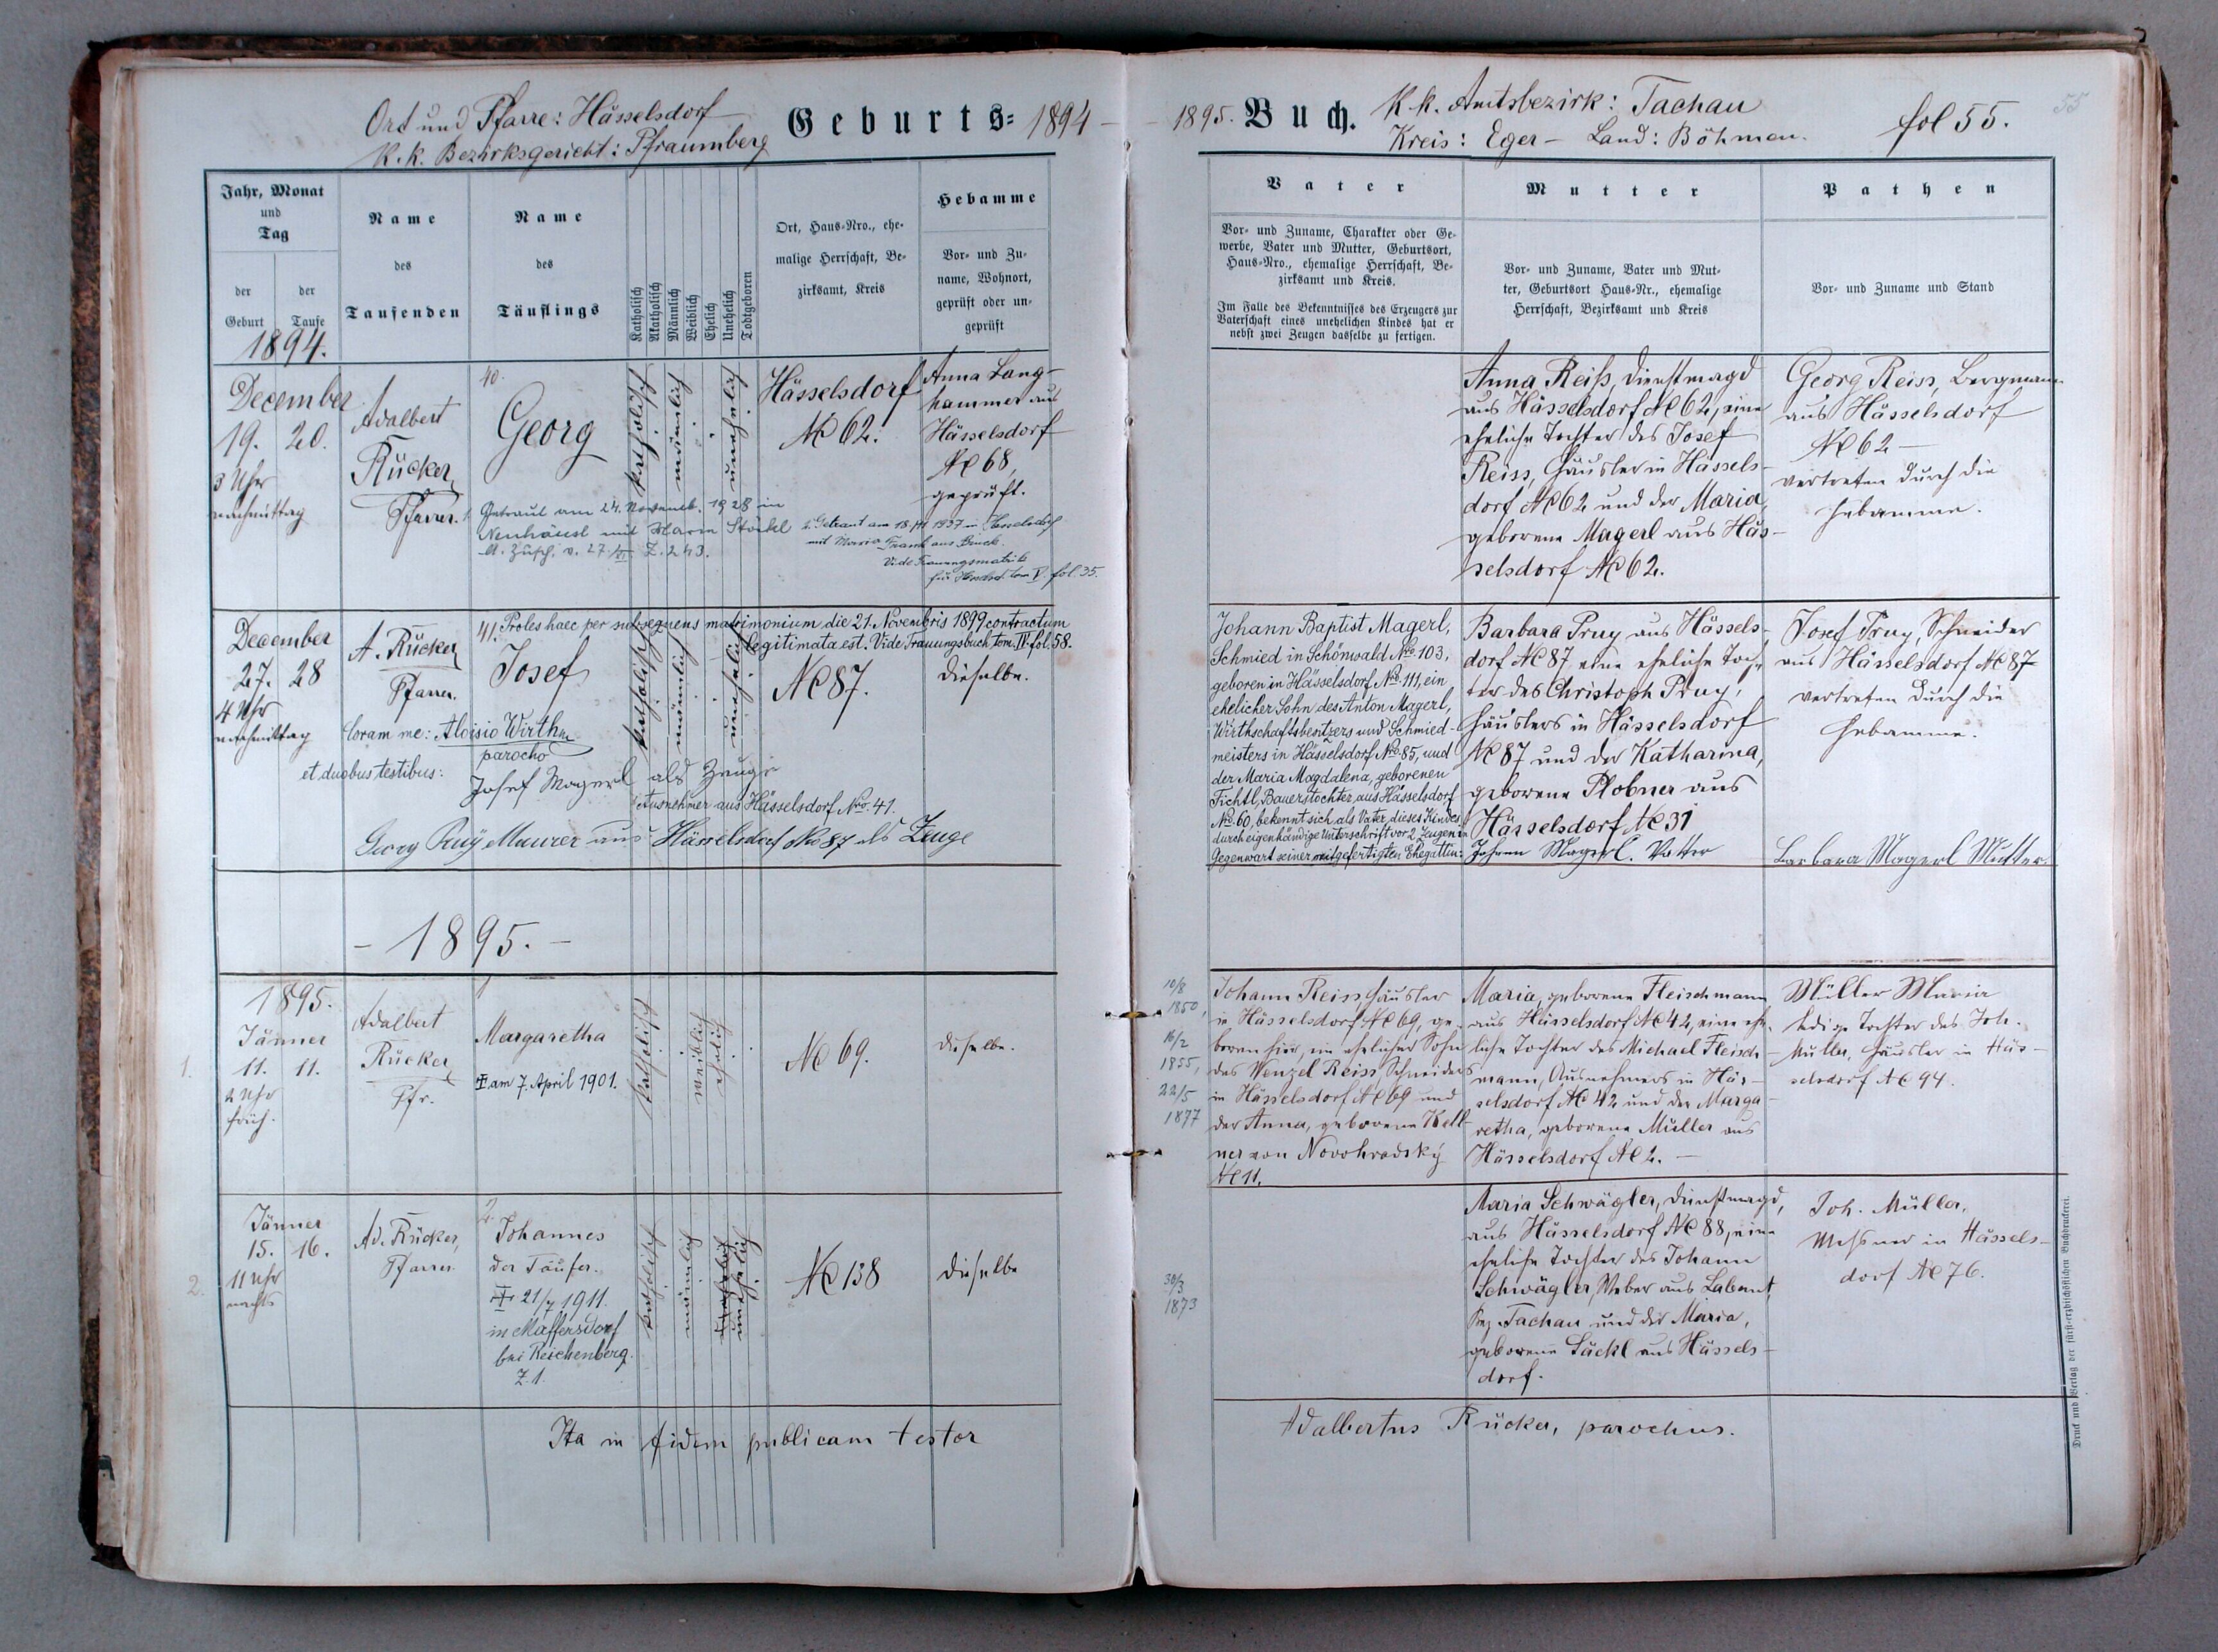 Ort und Pfarre: Hässelsdorf
K. k. Bezirksgericht: Pfraumberg
Geburts= 1894 -
Jahr, Monat
und
Tag
der
Geburt
der
Taufe
Name
des
Taufenden
Name
des
Täuflings
Katholisch
Akatholisch
Männlich
Weiblich
Ehelich
Unehelich
Todtgeboren
Ort, Haus=Nro., ehe=
malige Herrschaft, Be=
zirksamt, Kreis
Hebamme
Vor= und Zu=
name, Wohnort,
geprüft oder un=
geprüft
1894.
December
19. 20.
3 Uhr
nachmittag
Adalbert
Rücker,
Pfarrer.
40.
Georg
katholisch
männlich
unehelich
Hässelsdorf
№ 62.
Anna Lang-
hammer aus
Hässelsdorf
№ 68,
geprüft.
Getraut am 24. Novemb. 1928 in
Neuhäusl mit Maria Stöckl
2. Getraut am 18
mit Maria Frank aus Bruck.
Vide Trauungsmatrik
tom V. fol. 35.
December
27. 28
4 Uhr
nachmittag
A. Rücker
Pfarrer.
41. Proles haec per subsequens matrimonium die 21. Novembris 1899 contractum
legitimata est. Vide Trauungsbuch tom. IV. fol. 58.
Josef
katholisch
männlich
unehelich
№ 87.
dieselbe.
Coram me: Aloisio Wirth
parocho
et duobus testibus:
Josef Magerl als Zeuge
Ausnehmer aus Hässelsdorf Nro. 41.
Georg Pruy Maurer aus Hässelsdorf Nro 87 als Zeuge
- 1895. -
1895.
Jänner
11. 11.
2 Uhr
früh.
1.
Adalbert
Rücker
Pfr.
Margaretha
am 7. April 1901.
katholisch
weiblich
ehelich
№ 69.
dieselbe.
Jänner
15. 16.
11 Uhr
nachts
2.
Ad. Rücker,
Pfarrer
2.
Johannes
der Täufer.
21/7 1911.
in Maffersdorf
bei Reichenberg.
Z. 1.
katholisch
männlich
unehelich
№ 138
dieselbe
Ita in fidem publicam testor
1895. Buch.
K. k. Amtsbezirk: Tachau
Kreis: Eger - Land: Böhmen.
fol 55.
55
Vater
Vor= und Zuname, Charakter oder Ge=
werbe, Vater und Mutter, Geburtsort,
Haus=Nro., ehemalige Herrschaft, Be=
zirksamt und Kreis.
Im Falle des Bekenntnisses des Erzeugers zur
Vaterschaft eines unehelichen Kindes hat er
nebst zwei Zeugen dasselbe zu fertigen.
Mutter
Vor= und Zuname, Vater und Mut=
ter, Geburtsort Haus=Nr., ehemalige
Herrschaft, Bezirksamt und Kreis
Pathen
Vor= und Zuname und Stand
Anna Reiß, Dienstmagd
aus Hässelsdorf № 62, eine
eheliche Tochter des Josef
Reiss, Häusler in Hässels-
dorf № 62 und der Maria,
geborene Magerl aus Häs-
selsdorf № 62.
Georg Reiss, Bergmann
aus Hässelsdorf
№ 62 -
vertreten durch die
Hebamme.
Johann Baptist Magerl,
Schmied in Schönwald Nro. 103,
geboren in Hässelsdorf Nro. 111, ein
ehelicher Sohn des Anton Magerl,
Wirthschaftsbesitzers und Schmied-
meisters in Hässelsdorf Nro. 85, und
der Maria Magdalena, geborenen
Fichtl, Bauerstochter, aus Hässelsdorf
Nro. 60, bekennt sich als Vater dieses Kindes
durch eigenhändige Unterschrift vor 2 Zeugen in
Gegenwart seiner mitgefertigten Ehegattin:
Barbara Pruy aus Hässels-
dorf № 87, eine eheliche Toch-
ter des Christoph Pruy,
Häuslers in Hässelsdorf
№ 87 und der Katharina,
geborene Plobner aus
Hässelsdorf № 31
Johann Magerl. Vatter
Josef Pruy, Schneider
aus Hässelsdorf № 87
vertreten durch die
Hebamme.
Barbara Magerl Mutter
10/8
1850,
16/2
1855,
22/5
1877
Johann Reiss Häusler
in Hässelsdorf № 69, ge-
boren hier, ein ehelicher Sohn
des Wenzel Reiss, Schneiders
in Hässelsdorf № 69 und
der Anna, geborene Kell-
ner von Novohradský
№ 11.
Maria, geborene Fleischmann
aus Hässelsdorf № 42, eine ehe-
liche Tochter des Michael Fleisch-
mann, Ausnehmers in Häs-
selsdorf № 42 und der Marga-
retha, geborene Müller aus
Hässelsdorf № 2. -
Müller Maria
ledige Tochter des Joh.
Müller, Häusler in Häs-
selsdorf № 94.
30/3
1873
Maria Schwägler, Dienstmagd,
aus Hässelsdorf № 88, eine
eheliche Tochter des Johann
Schwägler, Weber aus Labant,
Bez. Tachau und der Maria,
geborene Säckl aus Hässels-
dorf.
Joh. Müller,
Meßner in Hässels-
dorf № 76.
Adalbertus Rücker, parochus.
Druck und Verlag der fürst=erzbischöflichen Buchdruckerei.